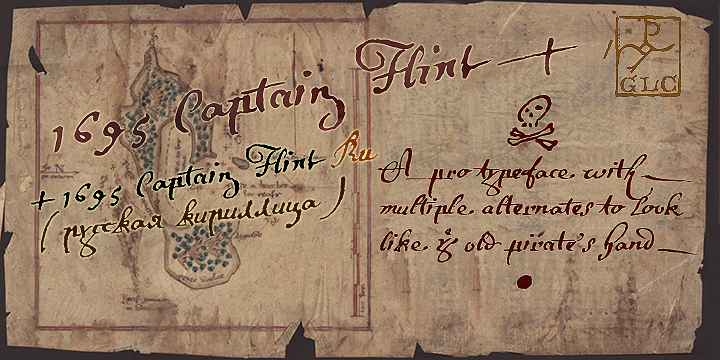 1695 Captain Flint +
+ 1695 Captain Flint Ru
(русская кириллица)
A pro typeface with
multiple alternates to look
like ye old pirate's hand
P
GLC
N